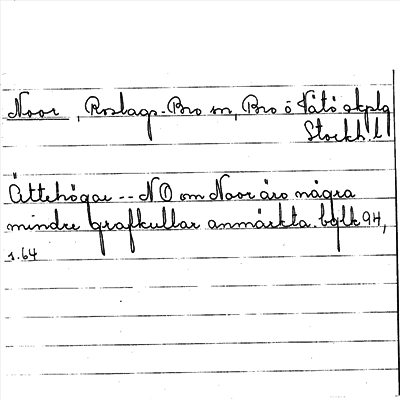 Noor, Roslags-Bro sn, Bro o Vätö skplg
Stockh. l
Ättehögar -- NO om Noor äro några
mindre grafkullar anmärkta. bglk 94,
s. 64